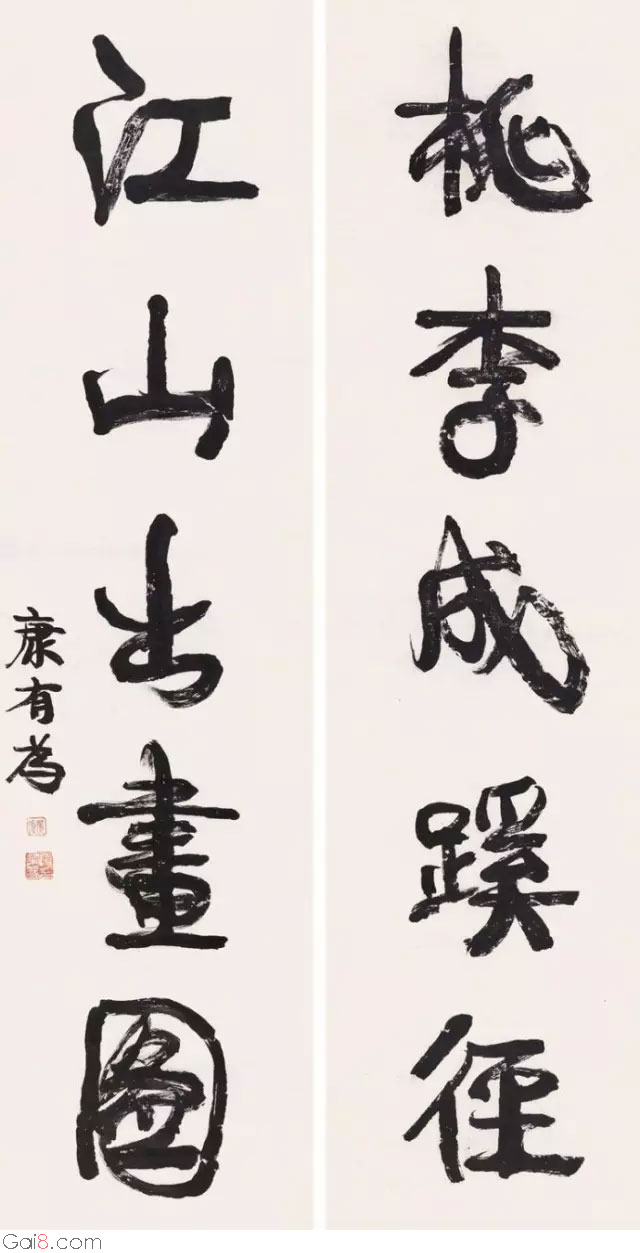 桃李成蹊徑
江山出畫圖
康有為
Gai8.com